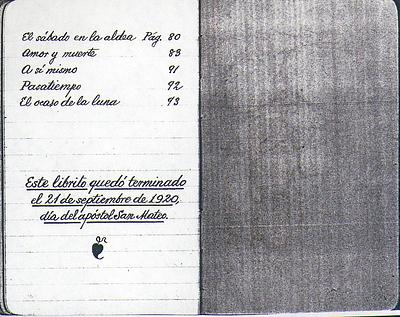 El sábado en la aldea Pág. 80
Amor y muerte 83
A sí mismo 91
Pasatiempo 92
El ocaso de la luna 93
Este librito quedó terminado
el 21 de septiembre de 1920,
día del apóstol San Mateo.